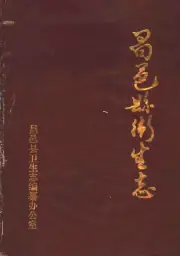 昌邑县卫生志
昌邑县卫生志编纂办公室